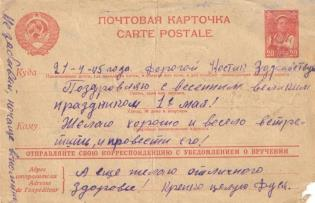 ПОЧТОВАЯ КАРТОЧКА
CARTE POSTALE
20 20
Куда 21-4-45 года. Дорогой Костик Здравствуй
Поздравляю с весенним великим
праздником 1ое мая!
Кому
Желаю хорошо и весело встре-
тить, и провести его!
ОТПРАВЛЯЙТЕ СВОЮ КОРРЕСПОНДЕНЦИЮ С УВЕДОМЛЕНИЕМ О ВРУЧЕНИИ
Адрес
отправителя
Adresse de
l'expéditeur
А еще желаю отличного
Здоровье! Крепко целую
Не забывай, почаще